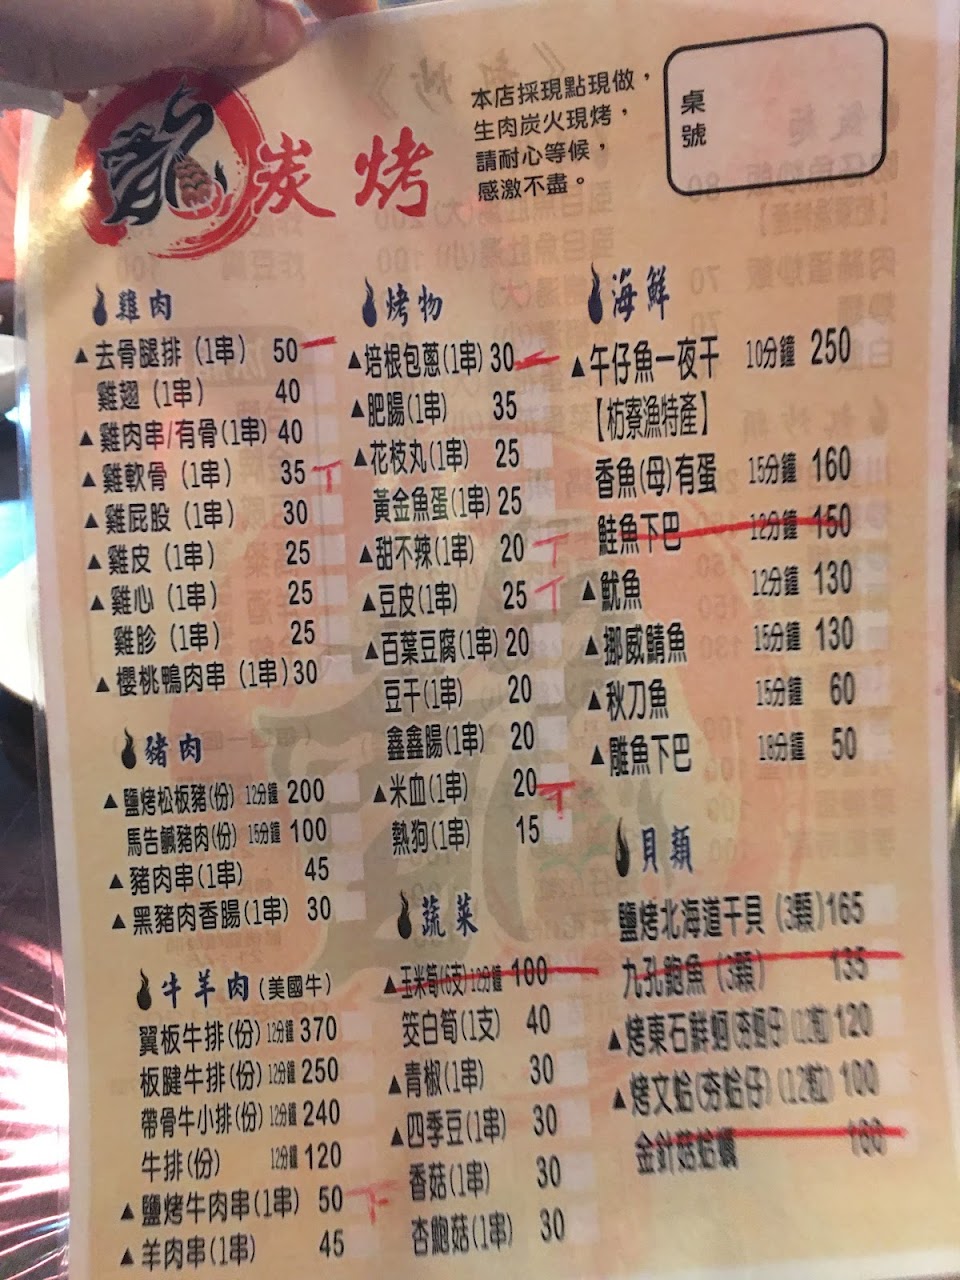 炭烤
本店採現點現做，
生肉炭火現烤，
請耐心等候，
感激不盡。
桌
號
雞肉
▲去骨腿排 (1串) 50
雞翅 (1串) 40
▲雞肉串/有骨(1串) 40
▲雞軟骨 (1串) 35
▲雞屁股 (1串) 30
▲雞皮 (1串) 25
▲雞心 (1串) 25
雞胗 (1串) 25
▲櫻桃鴨肉串 (1串) 30
豬肉
▲鹽烤松板豬(份) 12分鐘 200
馬告鹹豬肉(份) 15分鐘 100
▲豬肉串(1串) 45
▲黑豬肉香腸(1串) 30
牛羊肉(美國牛)
翼板牛排(份) 12分鐘 370
板腱牛排(份) 12分鐘 250
帶骨牛小排(份) 12分鐘 240
牛排(份) 12分鐘 120
▲鹽烤牛肉串(1串) 50
▲羊肉串(1串) 45
烤物
▲培根包蔥(1串) 30
▲肥腸(1串) 35
▲花枝丸(1串) 25
黃金魚蛋(1串) 25
▲甜不辣(1串) 20
▲豆皮(1串) 25
▲百葉豆腐(1串) 20
豆干(1串) 20
鑫鑫腸(1串) 20
▲米血(1串) 20
熱狗(1串) 15
蔬菜
▲玉米筍(6支) 12分鐘 100
筊白筍(1支) 40
▲青椒(1串) 30
▲四季豆(1串) 30
香菇(1串) 30
杏鮑菇(1串) 30
海鮮
▲午仔魚一夜干 10分鐘 250
【枋寮漁特產】
香魚(母)有蛋 15分鐘 160
鮭魚下巴 12分鐘 150
▲魷魚 12分鐘 130
▲挪威鯖魚 15分鐘 130
▲秋刀魚 15分鐘 60
▲雕魚下巴 18分鐘 50
貝類
鹽烤北海道干貝 (3顆) 165
九孔鮑魚 (3顆) 135
▲烤東石鮮蚵(夯蚵仔)(12粒) 120
▲烤文蛤(夯蛤仔)(12粒) 100
金針菇蛤蠣 160